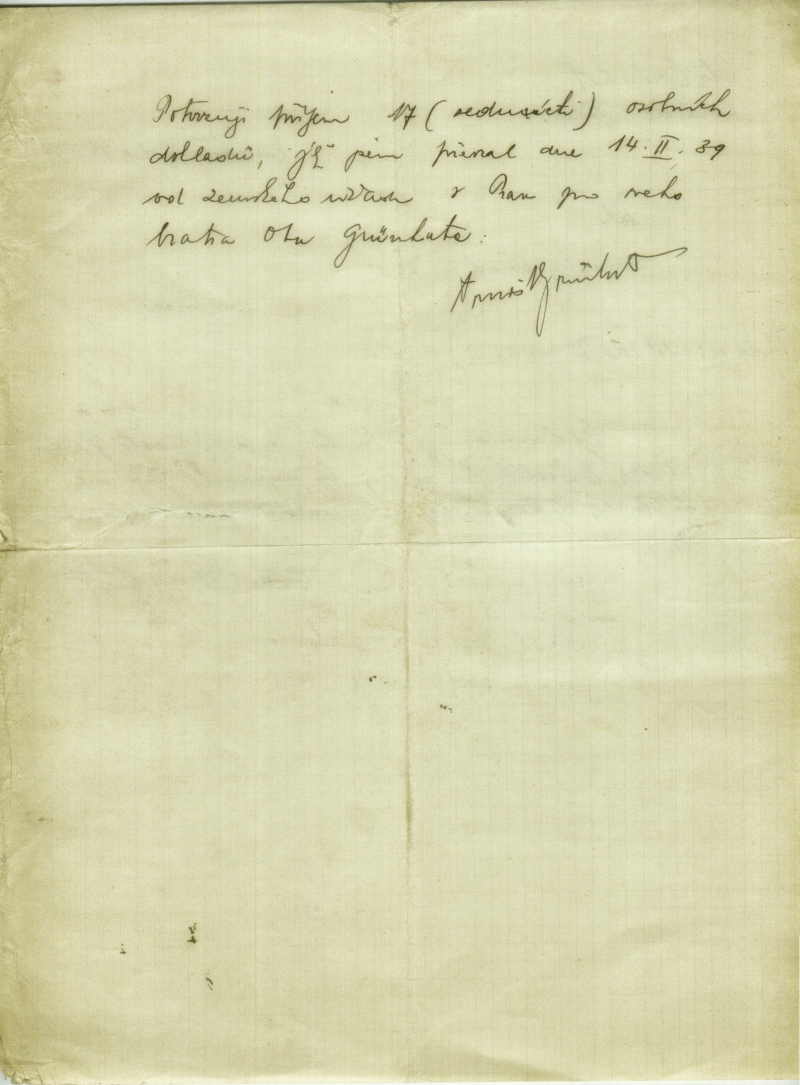 Potvrzuji příjem 17 (sedmnácti) osobních
dokladů, jež jsem přijal dne 14. II. 39
od zemského úřadu v Praze pro svého
bratra Otu Grünhuta.
Arnošt Grünhut